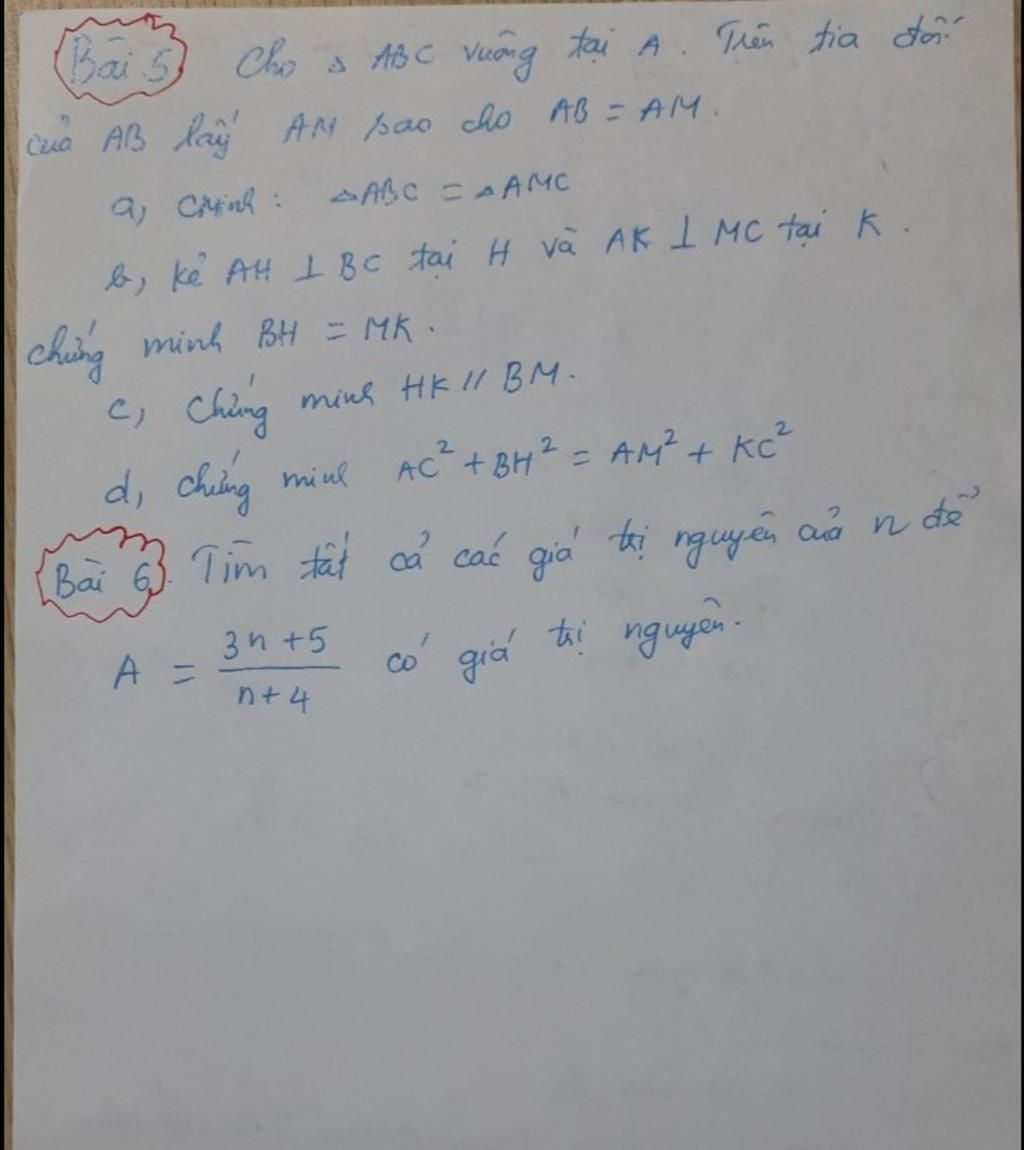 Bài 5 Cho △ ABC vuông tại A. Trên tia đối
của AB lấy AM sao cho AB = AM.
a, CMinh: △ABC = △AMC
b, kẻ AH ⊥ BC tại H và AK ⊥ MC tại K.
chứng minh BH = MK.
c, Chứng minh HK // BM.
d, chứng minh AC² + BH² = AM² + KC²
Bài 6. Tìm tất cả các giá trị nguyên của n để
A = (3n + 5)/(n + 4) có giá trị nguyên.